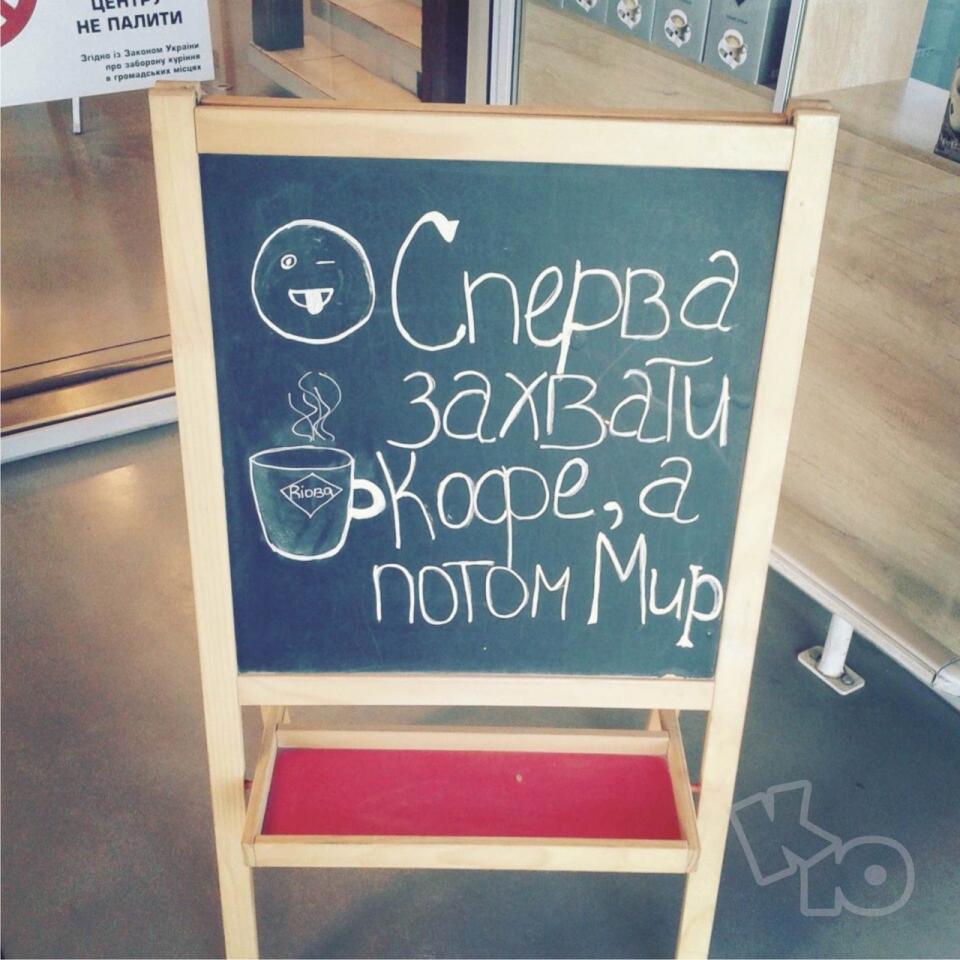 ЦЕНТРУ
НЕ ПАЛИТИ
Згідно із Законом України
про заборону куріння
в громадських місцях
Сперва
захвати
Кофе, а
потом Мир
RIOBA
КЮ